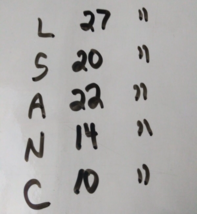 L 27 "
S 20 "
A 22 "
N 14 "
C 10 "